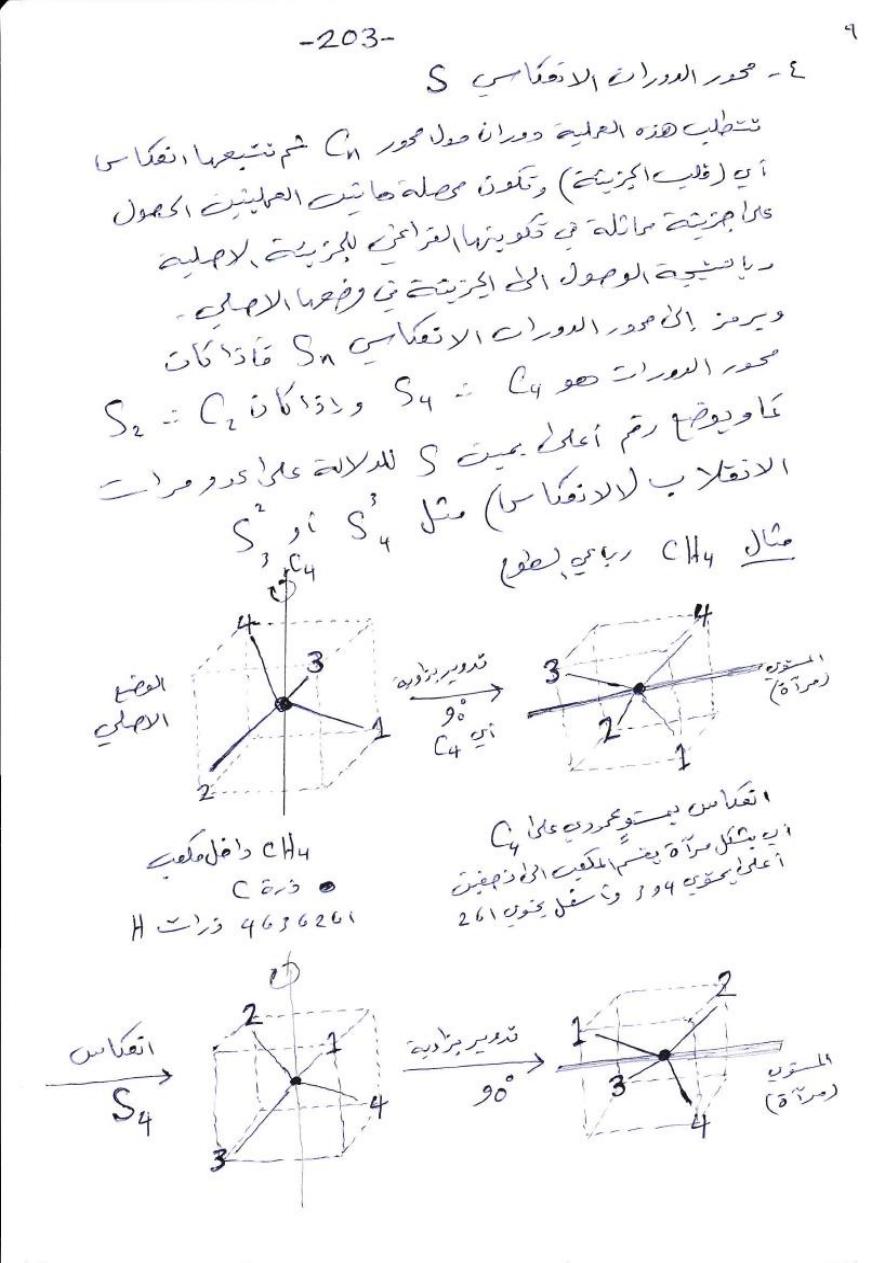 -203-
٩
٤- محور الدوران الانعكاسي S
تتطلب هذه العملية دوران حول محور Cn ثم تتبعها انعكاس
أي (قلب الجزيئة) وتكون محصلة هاتين العمليتين الحصول
على جزيئة مماثلة في تكوينها الفراغي للجزيئة الاصلية
وبالنتيجة الوصول الى الجزيئة في وضعها الاصلي.
ويرمز إلى محور الدوران الانعكاسي Sn فاذا كان
محور الدوران هو C4 ∴ S4 واذا كان C2 ∴ S2
كما ويوضع رقم أعلى يمين S للدلالة على عدد مرات
الانقلاب (الانعكاس) مثل S4^3 أو S3^2
مثال CH4 رباعي السطوح
C4
4
3
1
2
الوضع
الاصلي
تدوير بزاوية
90°
أي C4
4
3
2
1
المستوي
(مرآة)
CH4 داخل مكعب
● ذرة C
1 و 2 و 3 و 4 ذرات H
انعكاس بمستوٍ عمودي على C4
أي بشكل مرآة يقسم المكعب الى نصفين
أعلى يحتوي 4 و 3 وأسفل يحتوي 1 و 2
انعكاس
S4
2
1
4
3
تدوير بزاوية
90°
2
1
3
4
المستوي
(مرآة)